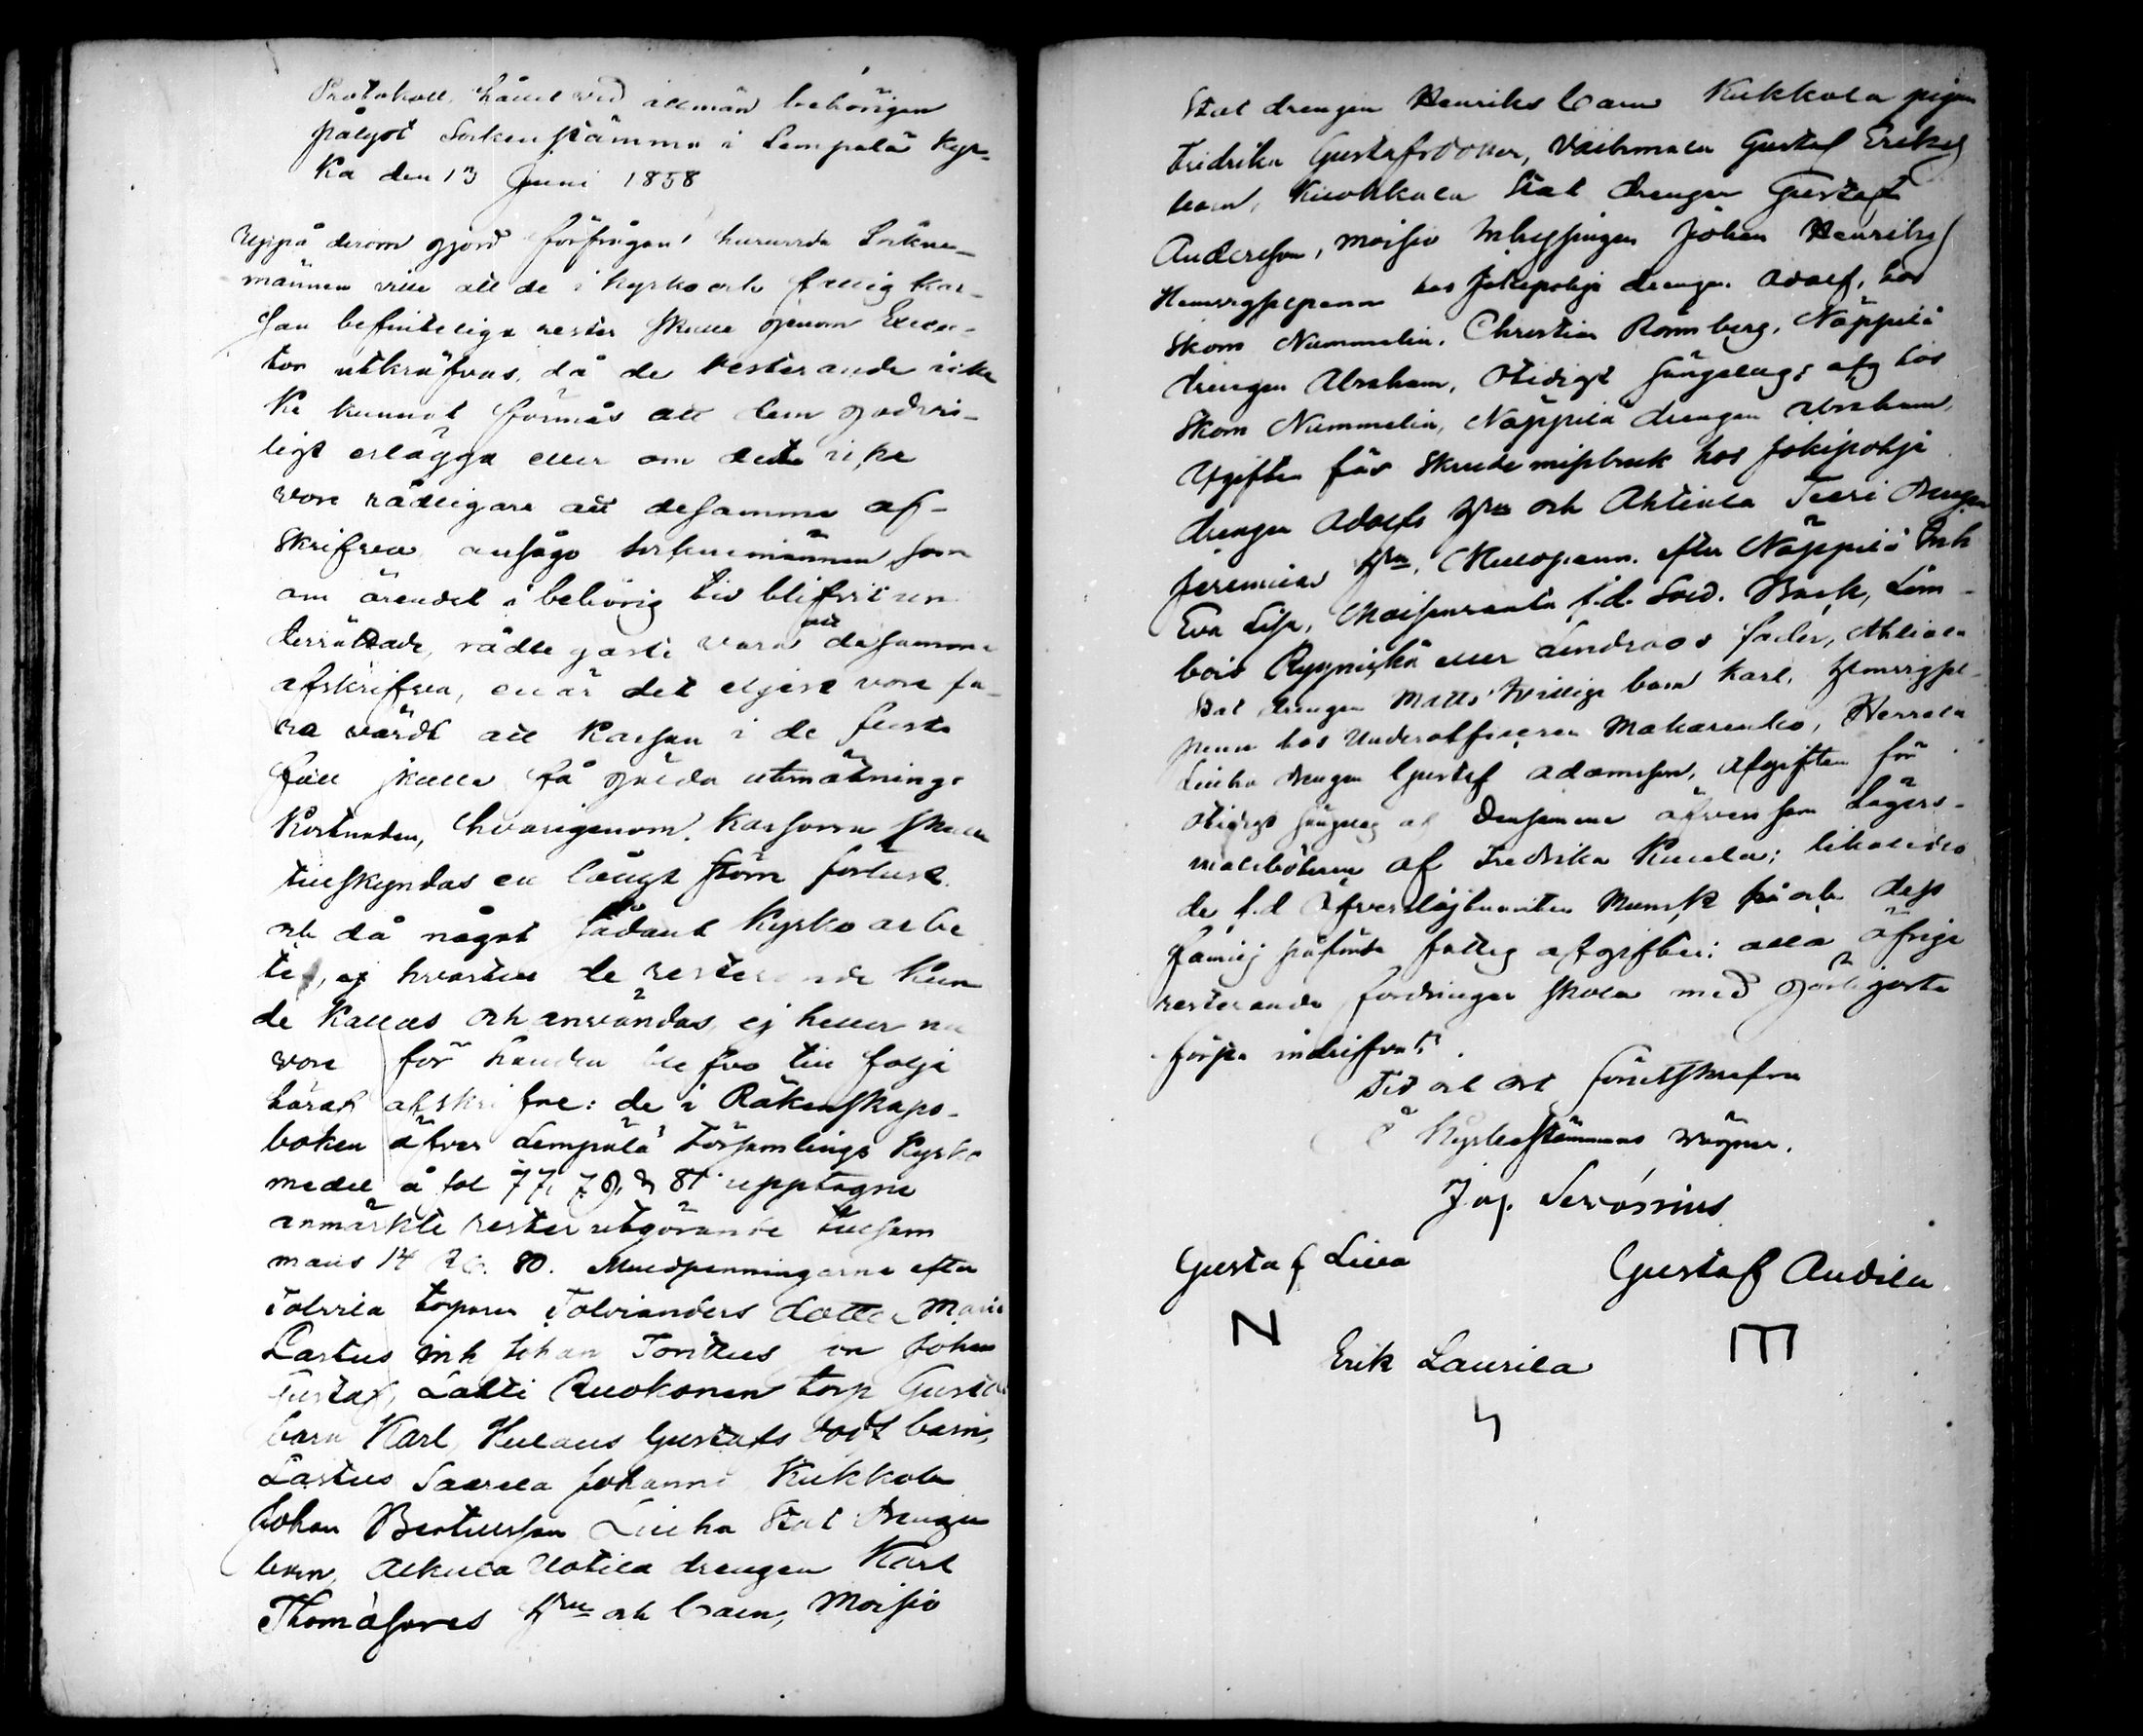 Protokoll, hållet vid allmän behörigen
pålyst Sockenstämma i Lempälä Kyr-
ka den 13 Juni 1858
Uppå derom gjord förfrågan, huruvida Sockne-
männen ville att de i Kyrko och fattig kas-
san befinteliga rester skulle genom Execu-
tor utkräfvas, då de resterande icke
kunnat förmås att dem godvil-
ligt erlägga eller om dett icke
vore rådligare att desamma af-
skrifva ansågo sockenemännen som
om ärendet i behörig tid blifvit un
derrättade, rådligast vara att desamma
afskrifva, enär det eljest vore fa-
ra värdt att Kassan i de flesta
fall skulle få gälda utmätnings
Kostnaden, hvarigenom Kassorna skulle
tillskyndas en långt större förlust
och då något sådant Kyrko arbe
te, ej hvartill de resterande kun
de kallas och användas, ej heller nu
vore för handen blefvo till följe
häraf afskrifne: de i Räkenskaps-
boken öfver Lempälä Församlings Kyrko
medel å fol 77, 79, & 81 upptagne
anmärkte rester utgörande tillsam
mans 14 R. 80. Mullpenningarne efter
Tolvila torparen Tolvianders dotter Maria
Lastus inh Johan Tonttus son Johan
Gustaf, Latti Ruokonen torp Gustafs
barn Karl, Hulaus Gustafs dödf barn,
Lastus Saarela Johanni Kukkola
Johan Bertillsson Liuha Stat Drengen
barn, Alkula Uotila drengen Karl
Thomæsons Hru och barn, Moisio
Stat drengen Henriks barn Kukkola pigan
Fredrika Gustafsdotter, Vaihmala Gustaf Eriks
barn, Kuokkala Stat drengen Gustaf
Andersson, Moisio Inhyssingen Johan Henriks
Hemvistpenn hos Jokipohja drengen Adolf, hos
Skom Nummelin, Christian Rönnberg, Näppilä
drengen Abraham, Otidigt sängelags afg hos
Skom Nummelin, Näppilä drengen Abraham,
Afgiften för Skrudemissbruk hos Jokipohja
drengen Adolfs Hru och Ahtiala Teeri Drengen
Jeremias Hru, Mullpenn. efter Näppilä Inh
Eva Lisa, Maisenranta f.d. Sold. Back, Lem-
bois Ryynikä eller Lindroos fader, Ahtiala
Stat drengen Matts Wilhelms barn Karl, Hemvistpe-
nnen hos Underofficeren Makarenko, Herrala
Liuha drengen Gustaf Adamsson, Afgiften för
otidigt sängelag af Densamme äfvensom Lägers-
målsböterne af Fredrika Kuusela; likaledes
de f.d Öfverstelöjtnanten Munck för och dess
familj påförde fattig afgifter: alla öfrige
resterande fordringar skola med görligaste
första indrifvas.
Tid och ort förutskrefne
På Kyrkostämmans vägnar.
Jos. Servónius
Gustaf Lilla Gustaf Audila
N
Erik Laurila